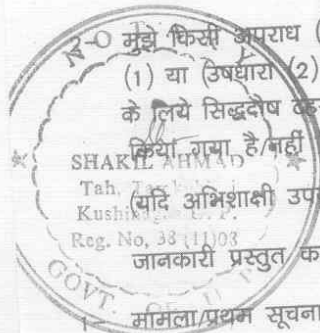 2-0 मुझे किसी अपराध (
(1) या (उपधारा (2)
के लिये सिद्धदोष
किया गया है/नहीं
(यदि अभिशाक्षी उप
जानकारी प्रस्तुत क
मामिला/प्रथम सूचना
NOT
SHAKIL AHMAD
Tah.
Kushinagar U. P.
Reg. No, 38 (11)03
GOVT. OF U P